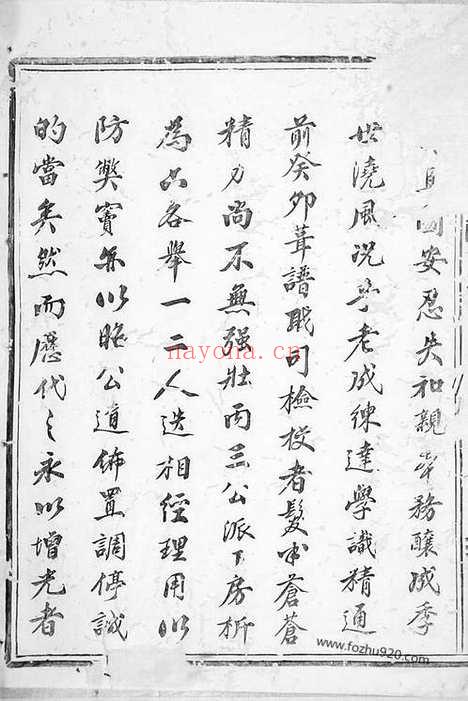 安忍失和親 務釀成季
世澆風況乎老成練達學識精通
前癸卯葺譜職司檢校者髮 蒼蒼
精力尚不無強壯丙三公派下房析
為六各舉一二人迭相經理用以
防獘竇亦以昭公道佈置調停誠
的當矣然而歷代之永以增光者
nayona.cn
www.fozhu920.com